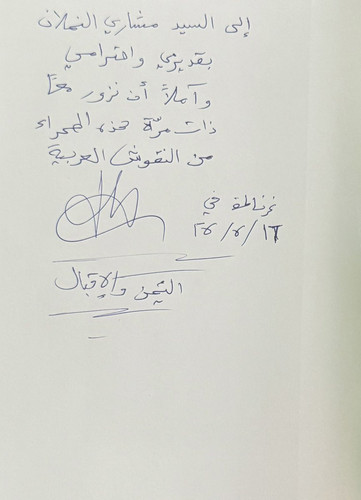 إلى السيد مشاري النملان
بتقديري واحترامي
وآملاً أن نزور معاً
ذات مرّة هذه الحمراء
من النقوش العربية
غرناطة في
اليمن والإقبال